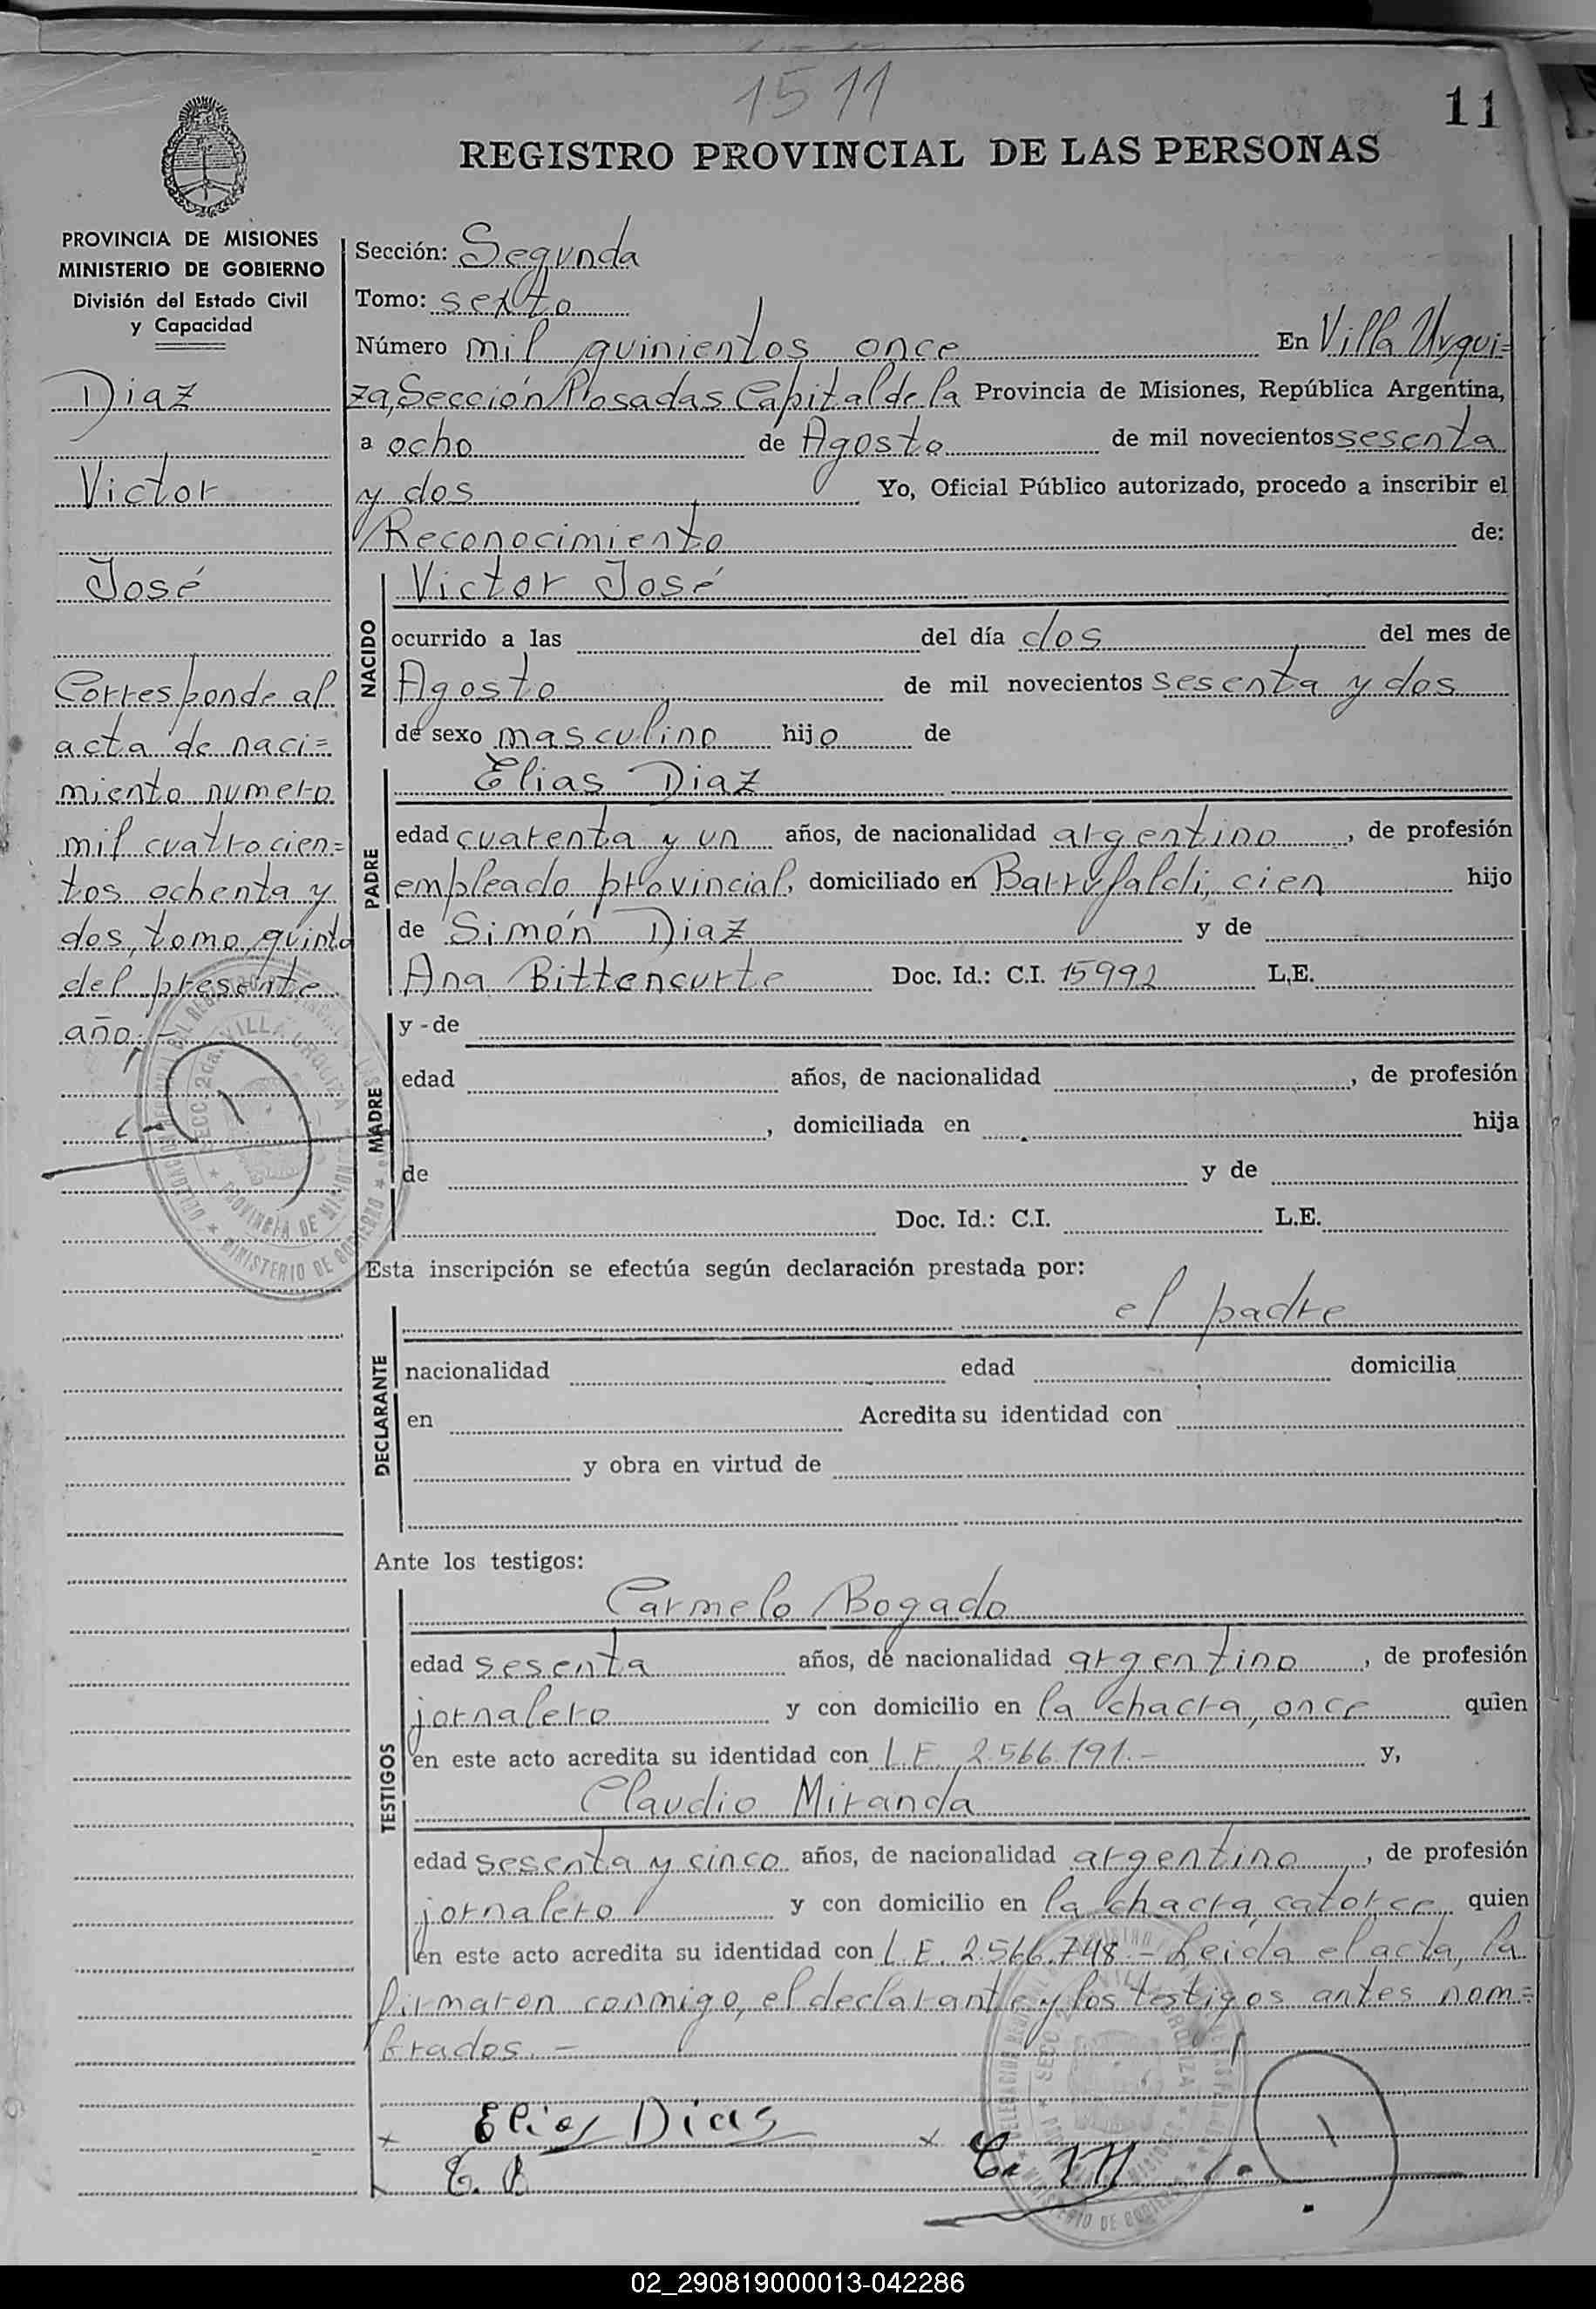 1511
11
REGISTRO PROVINCIAL DE LAS PERSONAS
PROVINCIA DE MISIONES
MINISTERIO DE GOBIERNO
División del Estado Civil
y Capacidad
Diaz
Victor
José
Corresponde al
acta de naci=
miento numero
mil cuatrocien=
tos ochenta y
dos, tomo quinto
del presente
año.-
Sección: Segunda
Tomo: sexto
Número mil quinientos once En Villa Urqui=
za, Sección Posadas Capital de la Provincia de Misiones, República Argentina,
a ocho de Agosto de mil novecientos sesenta
y dos Yo, Oficial Público autorizado, procedo a inscribir el
Reconocimiento de:
NACIDO
Victor José
ocurrido a las del día dos del mes de
Agosto de mil novecientos sesenta y dos
de sexo masculino hijo de
PADRE
Elias Diaz
edad cuarenta y un años, de nacionalidad argentino, de profesión
empleado provincial, domiciliado en Barrufaldi, cien hijo
de Simón Diaz y de
Ana Bittencurte Doc. Id.: C.I. 15992 L.E.
MADRE
y - de
edad años, de nacionalidad , de profesión
, domiciliada en hija
de y de
Doc. Id.: C.I. L.E.
Esta inscripción se efectúa según declaración prestada por:
DECLARANTE
el padre
nacionalidad edad domicilia
en Acredita su identidad con
y obra en virtud de
Ante los testigos:
TESTIGOS
Carmelo Bogado
edad sesenta años, de nacionalidad argentino, de profesión
jornalero y con domicilio en la chacra, once quien
en este acto acredita su identidad con L.E. 2.566.191.- y,
Claudio Miranda
edad sesenta y cinco años, de nacionalidad argentino, de profesión
jornalero y con domicilio en la chacra, catorce quien
en este acto acredita su identidad con L.E. 2.566.748.- Leida el acta, la
firmaron conmigo, el declarante y los testigos antes nom=
brados.-
x Elias Dias x
02_290819000013-042286